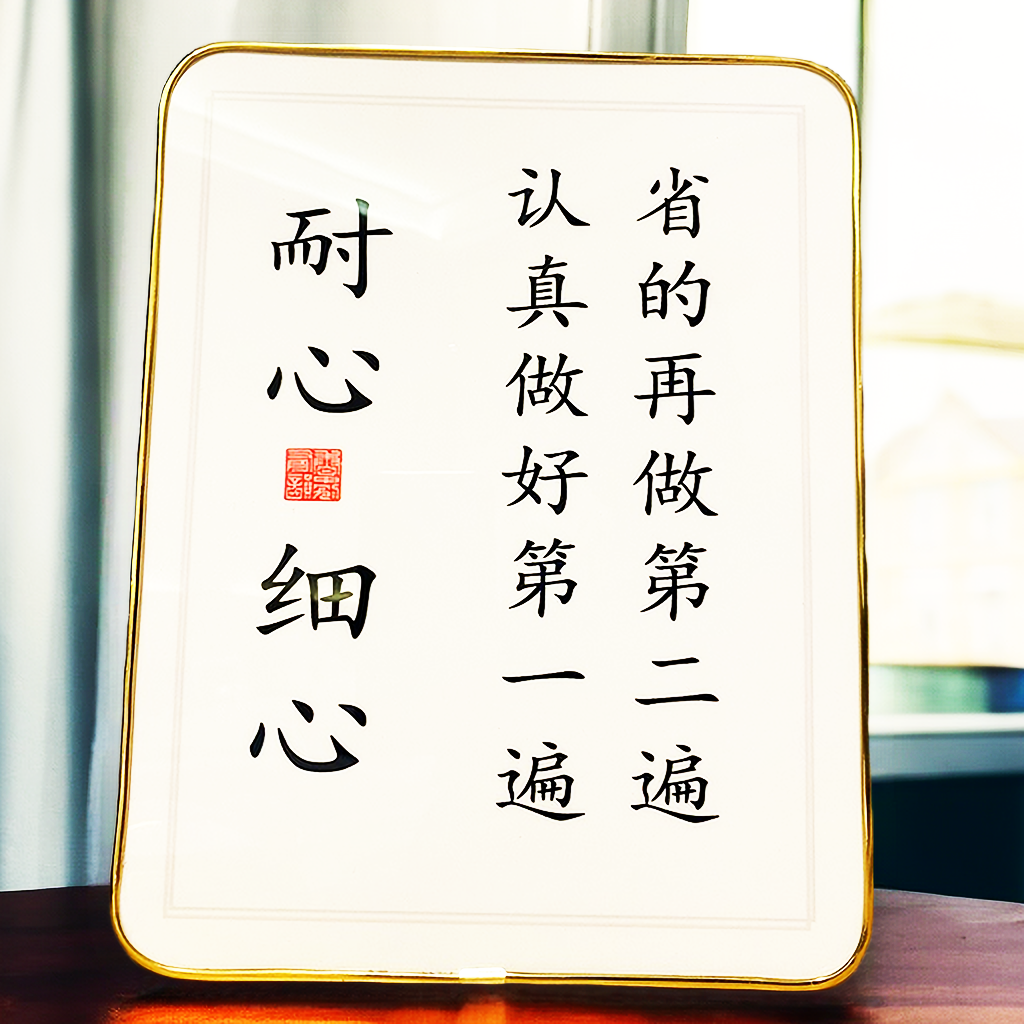 耐心细心
认真做好第一遍
省的再做第二遍